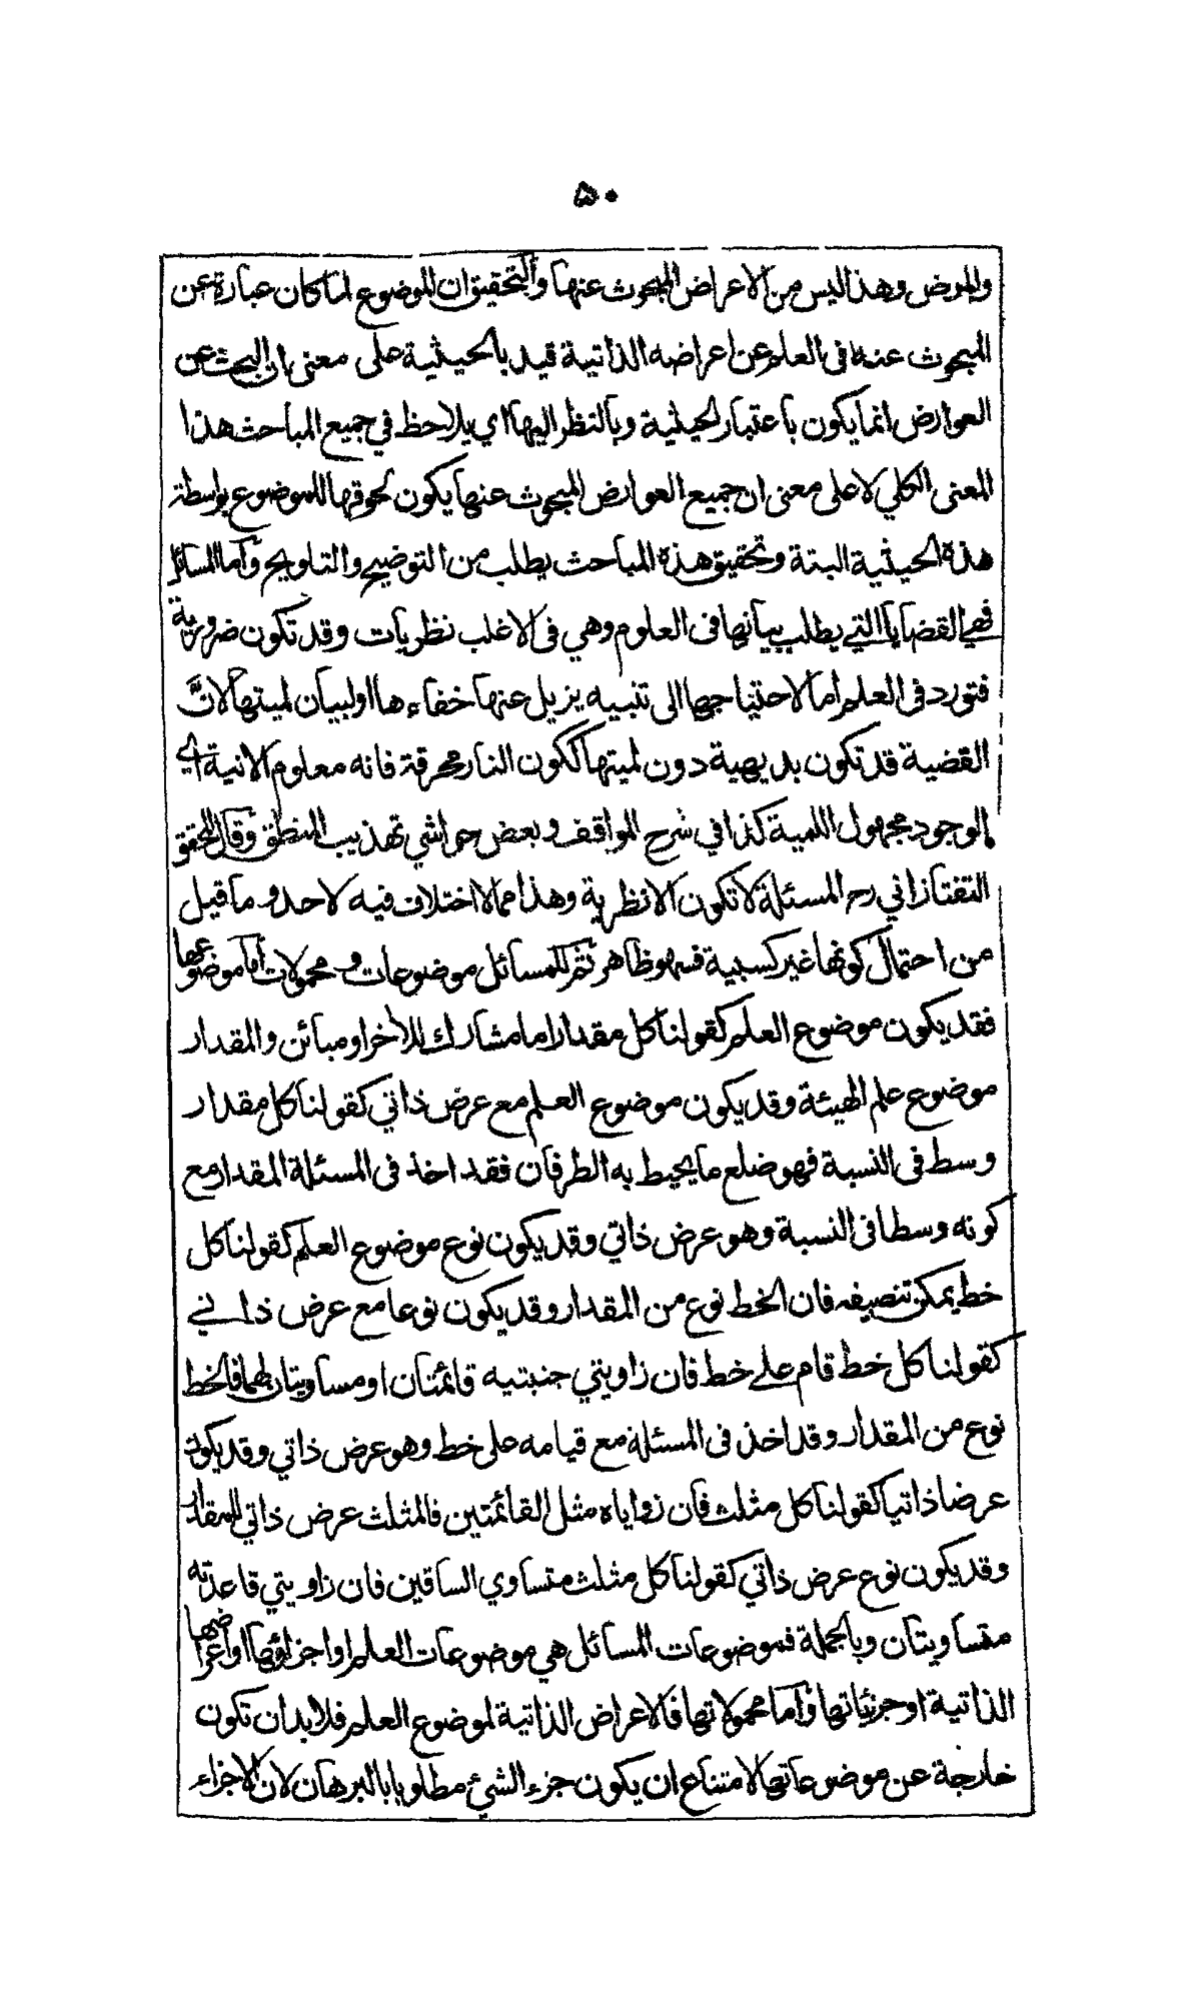 ۵۰
والمرض وهذا ليس من الاعراض المبحوث عنها والتحقيق ان الموضوع لما كان عبارة عن
المبحوث عنه فى العلم عن اعراضه الذاتية قيد بالحيثية على معنى ان البحث عن
العوارض انما يكون باعتبار الحيثية وبالنظر اليها اي يلاحظ في جميع المباحث هذا
المعنى الكلي لا على معنى ان جميع العوارض المبحوث عنها يكون لحوقها للموضوع بواسطة
هذه الحيثية البتة وتحقيق هذه المباحث يطلب من التوضيح والتلويح وأما المسائل
فهي القضايا التي يطلب بيانها فى العلوم وهي فى الاغلب نظريات وقد تكون ضرورية
فتورد فى العلم اما لاحتياجها الى تنبيه يزيل عنها خفاءها او لبيان لميتها لانّ
القضية قد تكون بديهية دون لميتها ككون النار محرقة فانه معلوم الانية اي
الوجود مجهول اللمية كذا في شرح المواقف وبعض حواشي تهذيب المنطق وقال المحقق
التفتازاني رح المسئلة لا تكون الا نظرية وهذا مما لا اختلاف فيه لاحد وما قيل
من احتمال كونها غير كسبية فسهو ظاهر ثم للمسائل موضوعات ومحمولات أما موضوعها
فقد يكون موضوع العلم كقولنا كل مقدار اما مشارك للأخر او مبائن والمقدار
موضوع علم الهيئة وقد يكون موضوع العلم مع عرض ذاتي كقولنا كل مقدار
وسط فى النسبة فهو ضلع ما يحيط به الطرفان فقد اخذ فى المسئلة المقدار مع
كونه وسطا فى النسبة وهو عرض ذاتي وقد يكون نوع موضوع العلم كقولنا كل
خط يمكن تنصيفه فان الخط نوع من المقدار وقد يكون نوعا مع عرض ذاتي
كقولنا كل خط قام على خط فان زاويتي جنبتيه قائمتان او مساويتان لهما فالخط
نوع من المقدار وقد اخذ فى المسئلة مع قيامه على خط وهو عرض ذاتي وقد يكون
عرضا ذاتيا كقولنا كل مثلث فان زواياه مثل القائمتين فالمثلث عرض ذاتي للمقدار
وقد يكون نوع عرض ذاتي كقولنا كل مثلث متساوي الساقين فان زاويتي قاعدته
متساويتان وبالجملة فموضوعات المسائل هي موضوعات العلم او اجزاؤها او اعراضها
الذاتية او جزئياتها وأما محمولاتها فالاعراض الذاتية لموضوع العلم فلا بد ان تكون
خارجة عن موضوعاتها لامتناع ان يكون جزء الشئ مطلوبا بالبرهان لان الاجزاء